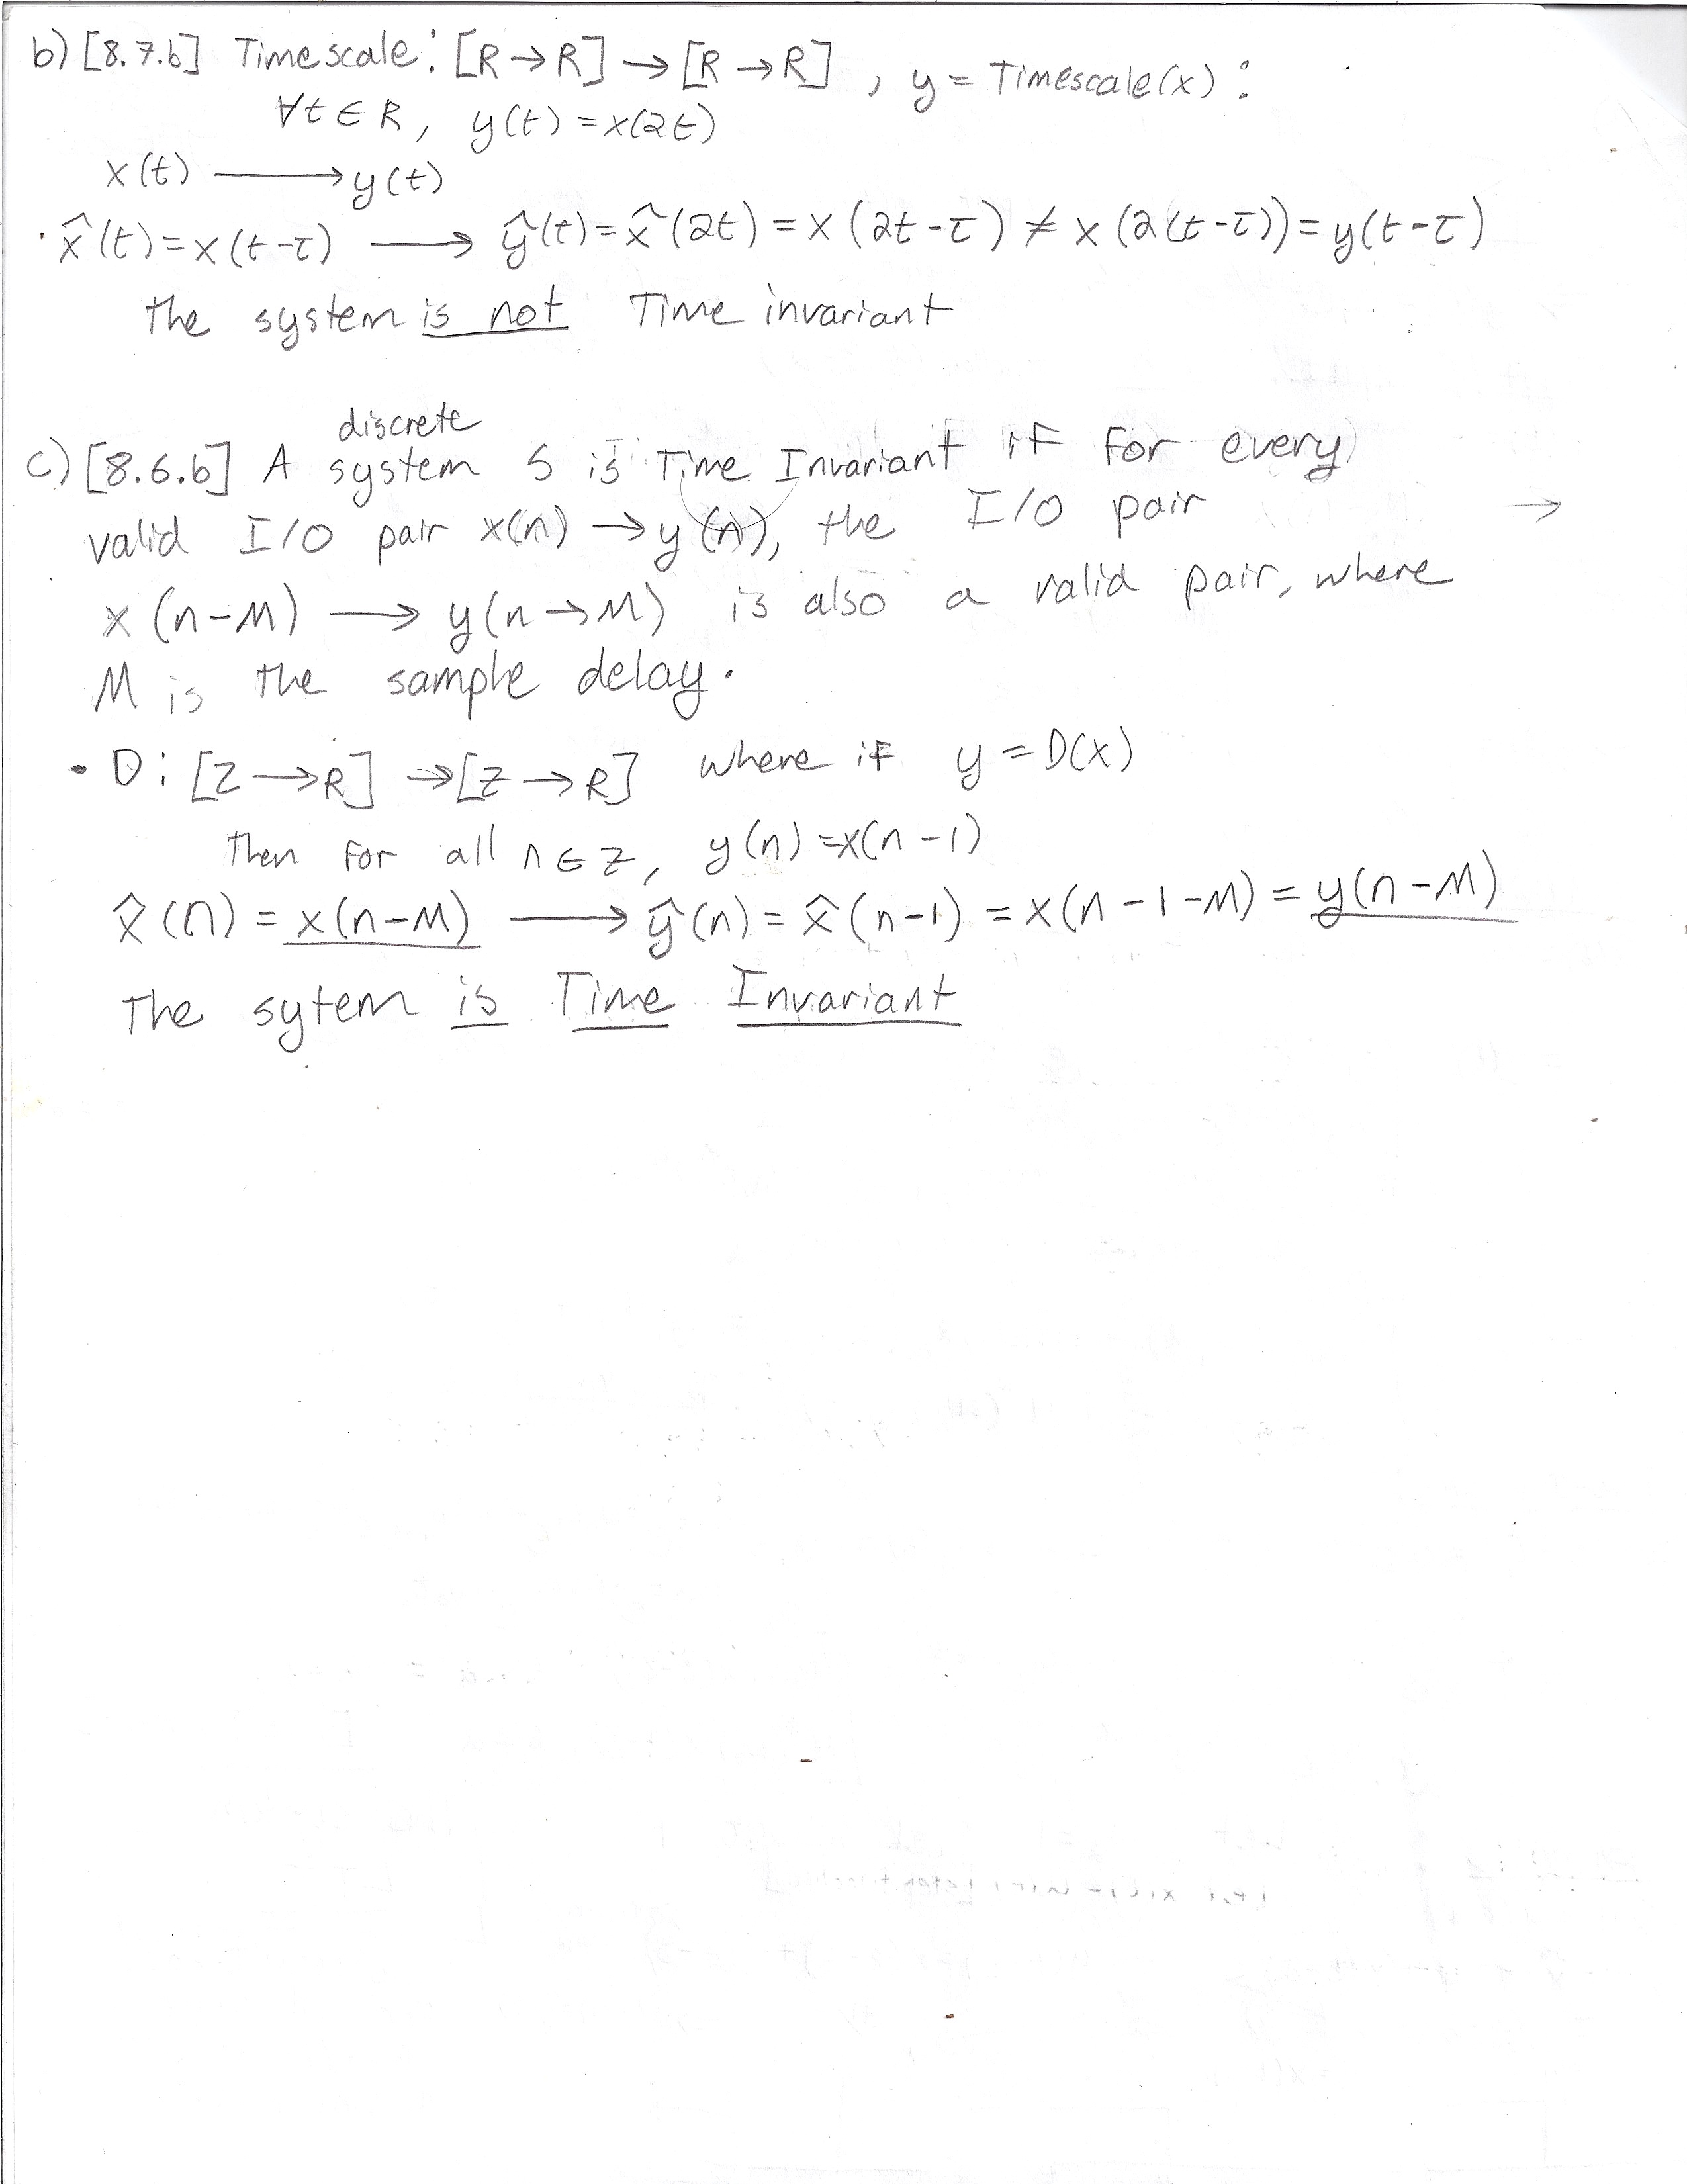 b) [8.7.b] Timescale: [R→R] → [R→R] , y = Timescale(x) :
∀t ∈ R, y(t) = x(2t)
x(t) ⟶ y(t)
· x̂(t) = x(t-τ) ⟶ ŷ(t) = x̂(2t) = x(2t-τ) ≠ x(2(t-τ)) = y(t-τ)
The system is not Time invariant
discrete
c) [8.6.b] A system S is Time Invariant if for every
valid I/O pair x(n) → y(n), the I/O pair →
x(n-M) ⟶ y(n→M) is also a valid pair, where
M is the sample delay.
• D: [Z→R] → [Z→R] where if y = D(x)
Then for all n ∈ Z, y(n) = x(n-1)
x̂(n) = x(n-M) ⟶ ŷ(n) = x̂(n-1) = x(n-1-M) = y(n-M)
The sytem is Time Invariant